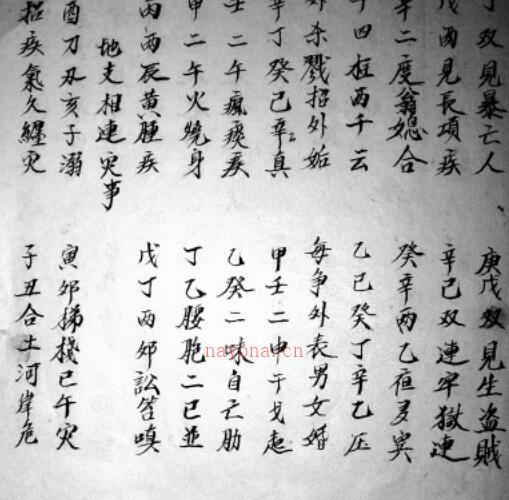 丁双見暴亡人 庚戊双見生盗賊
戊两見長項疾 辛己双連牢獄連
辛二度翁媳合 癸辛两乙夜多寞
十四柱两千云 乙己癸丁辛乙压
外杀戮招外姤 每争外表男女婚
辛丁癸己辛真 甲壬二申干戈起
壬二午瘋痰疾 乙癸二味自亡肋
甲二午火燒身 丁乙腰胞二巳並
丙两辰黄腫疾 戊丁两卯訟笞嗔
地支相連灾事
酉刀刃亥子溺 寅卯梯棧巳午灾
招疾氣久纏灾 子丑合土河岸危
nayona.cn